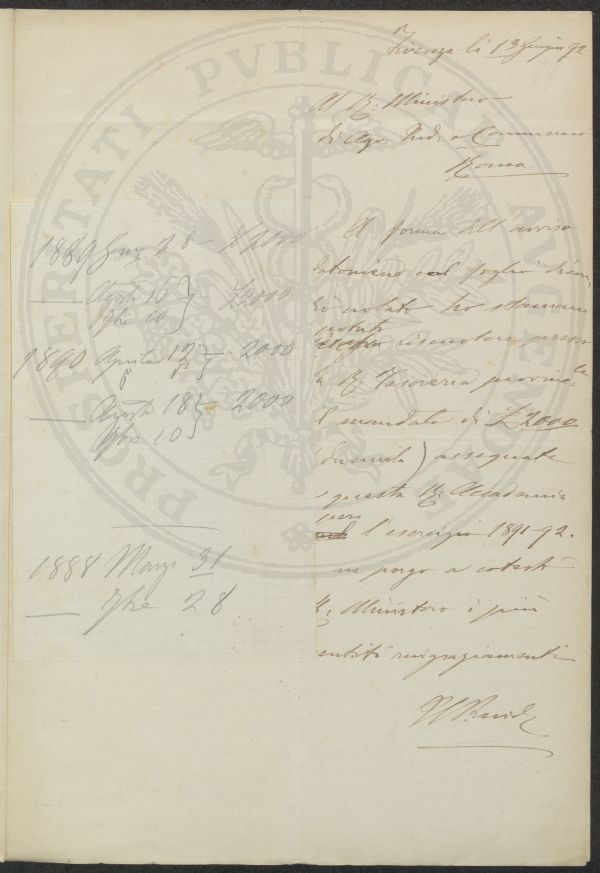 Firenze li 13 Giugno 92
Al R. Ministero
di Agr. Ind. e Commercio
Roma
A forma dell'avviso
nel foglio
notato ho
potuto
riscuotere presso
la R. Tesoreria provinc.le
il mandato di £ 2000
(duemila) assegnate
a questa R. Accademia
per
l'esercizio 1891-92.
ne porgo a cotesto
R. Ministero i più
sentiti ringraziamenti
Il Presid.
1889 Genn. 28 — £ 2000
Agosto 16 } £ 2000
10
1890 Aprile 12 } — 2000
Agosto 18 } — 2000
10
1888 Marzo 31
28
PROSPERITATI PVBLICAE AVGENDAE